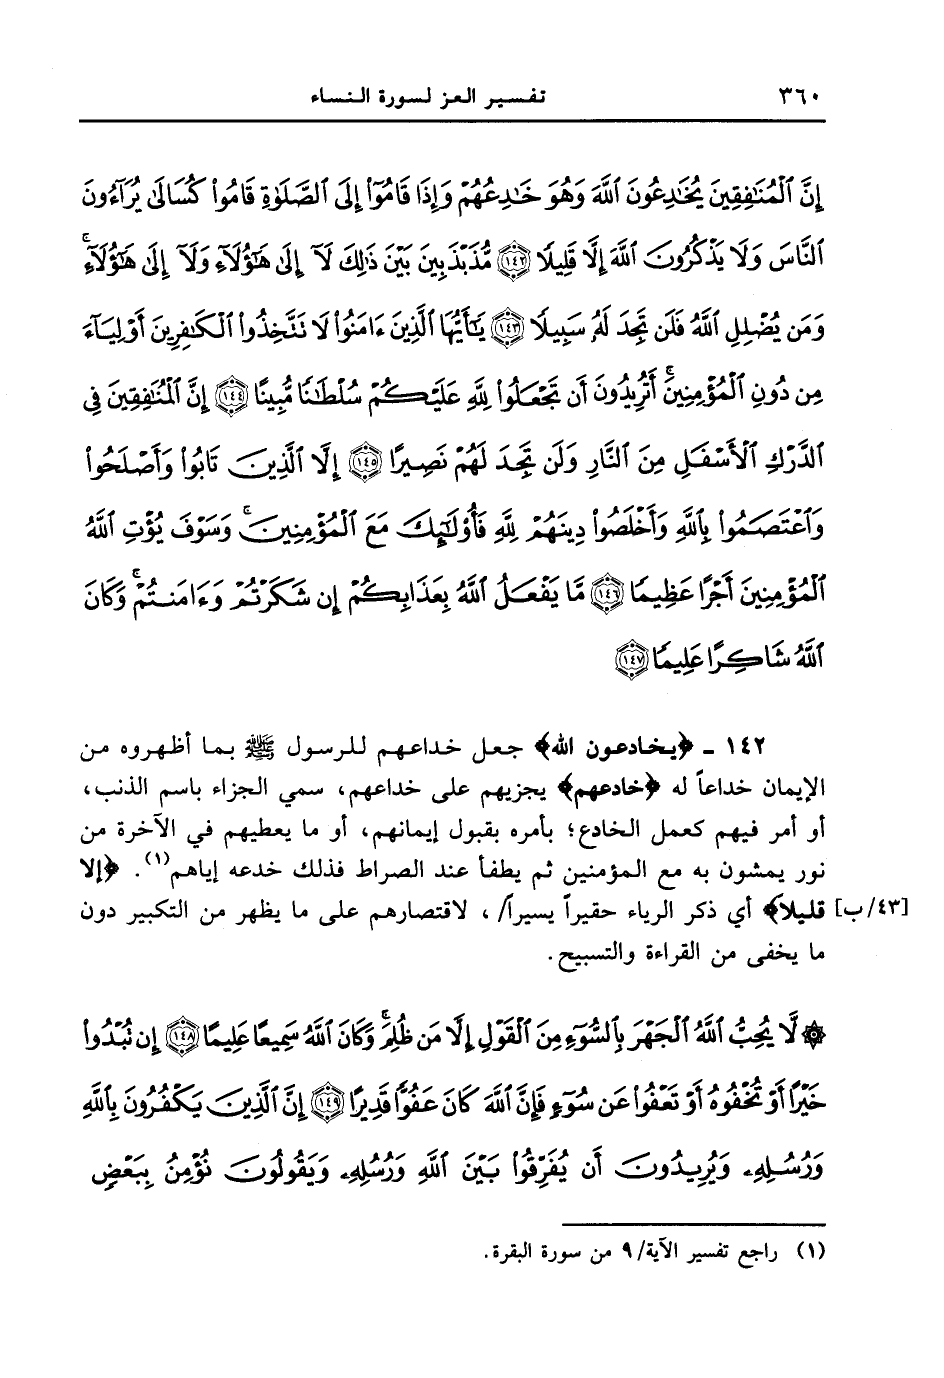 ٣٦٠ تفسير العز لسورة النساء
إِنَّ ٱلْمُنَٰفِقِينَ يُخَٰدِعُونَ ٱللَّهَ وَهُوَ خَٰدِعُهُمْ وَإِذَا قَامُوٓا۟ إِلَى ٱلصَّلَوٰةِ قَامُوا۟ كُسَالَىٰ يُرَآءُونَ
ٱلنَّاسَ وَلَا يَذْكُرُونَ ٱللَّهَ إِلَّا قَلِيلًا ١٤٢ مُّذَبْذَبِينَ بَيْنَ ذَٰلِكَ لَآ إِلَىٰ هَٰٓؤُلَآءِ وَلَآ إِلَىٰ هَٰٓؤُلَآءِ ۚ
وَمَن يُضْلِلِ ٱللَّهُ فَلَن تَجِدَ لَهُۥ سَبِيلًا ١٤٣ يَٰٓأَيُّهَا ٱلَّذِينَ ءَامَنُوا۟ لَا تَتَّخِذُوا۟ ٱلْكَٰفِرِينَ أَوْلِيَآءَ
مِن دُونِ ٱلْمُؤْمِنِينَ ۚ أَتُرِيدُونَ أَن تَجْعَلُوا۟ لِلَّهِ عَلَيْكُمْ سُلْطَٰنًا مُّبِينًا ١٤٤ إِنَّ ٱلْمُنَٰفِقِينَ فِى
ٱلدَّرْكِ ٱلْأَسْفَلِ مِنَ ٱلنَّارِ وَلَن تَجِدَ لَهُمْ نَصِيرًا ١٤٥ إِلَّا ٱلَّذِينَ تَابُوا۟ وَأَصْلَحُوا۟
وَٱعْتَصَمُوا۟ بِٱللَّهِ وَأَخْلَصُوا۟ دِينَهُمْ لِلَّهِ فَأُو۟لَٰٓئِكَ مَعَ ٱلْمُؤْمِنِينَ ۖ وَسَوْفَ يُؤْتِ ٱللَّهُ
ٱلْمُؤْمِنِينَ أَجْرًا عَظِيمًا ١٤٦ مَّا يَفْعَلُ ٱللَّهُ بِعَذَابِكُمْ إِن شَكَرْتُمْ وَءَامَنتُمْ ۚ وَكَانَ
ٱللَّهُ شَاكِرًا عَلِيمًا ١٤٧
١٤٢ ـ ﴿يخادعون الله﴾ جعل خداعهم للرسول ﷺ بما أظهروه من
الإيمان خداعاً له ﴿خادعهم﴾ يجزيهم على خداعهم، سمي الجزاء باسم الذنب،
أو أمر فيهم كعمل الخادع؛ بأمره بقبول إيمانهم، أو ما يعطيهم في الآخرة من
نور يمشون به مع المؤمنين ثم يطفأ عند الصراط فذلك خدعه إياهم(١). ﴿إلا
[٤٣/ب] قليلاً﴾ أي ذكر الرياء حقيراً يسيراً/، لاقتصارهم على ما يظهر من التكبير دون
ما يخفى من القراءة والتسبيح.
۞ لَّا يُحِبُّ ٱللَّهُ ٱلْجَهْرَ بِٱلسُّوٓءِ مِنَ ٱلْقَوْلِ إِلَّا مَن ظُلِمَ ۚ وَكَانَ ٱللَّهُ سَمِيعًا عَلِيمًا ١٤٨ إِن تُبْدُوا۟
خَيْرًا أَوْ تُخْفُوهُ أَوْ تَعْفُوا۟ عَن سُوٓءٍ فَإِنَّ ٱللَّهَ كَانَ عَفُوًّا قَدِيرًا ١٤٩ إِنَّ ٱلَّذِينَ يَكْفُرُونَ بِٱللَّهِ
وَرُسُلِهِۦ وَيُرِيدُونَ أَن يُفَرِّقُوا۟ بَيْنَ ٱللَّهِ وَرُسُلِهِۦ وَيَقُولُونَ نُؤْمِنُ بِبَعْضٍ
(١) راجع تفسير الآية/ ٩ من سورة البقرة.